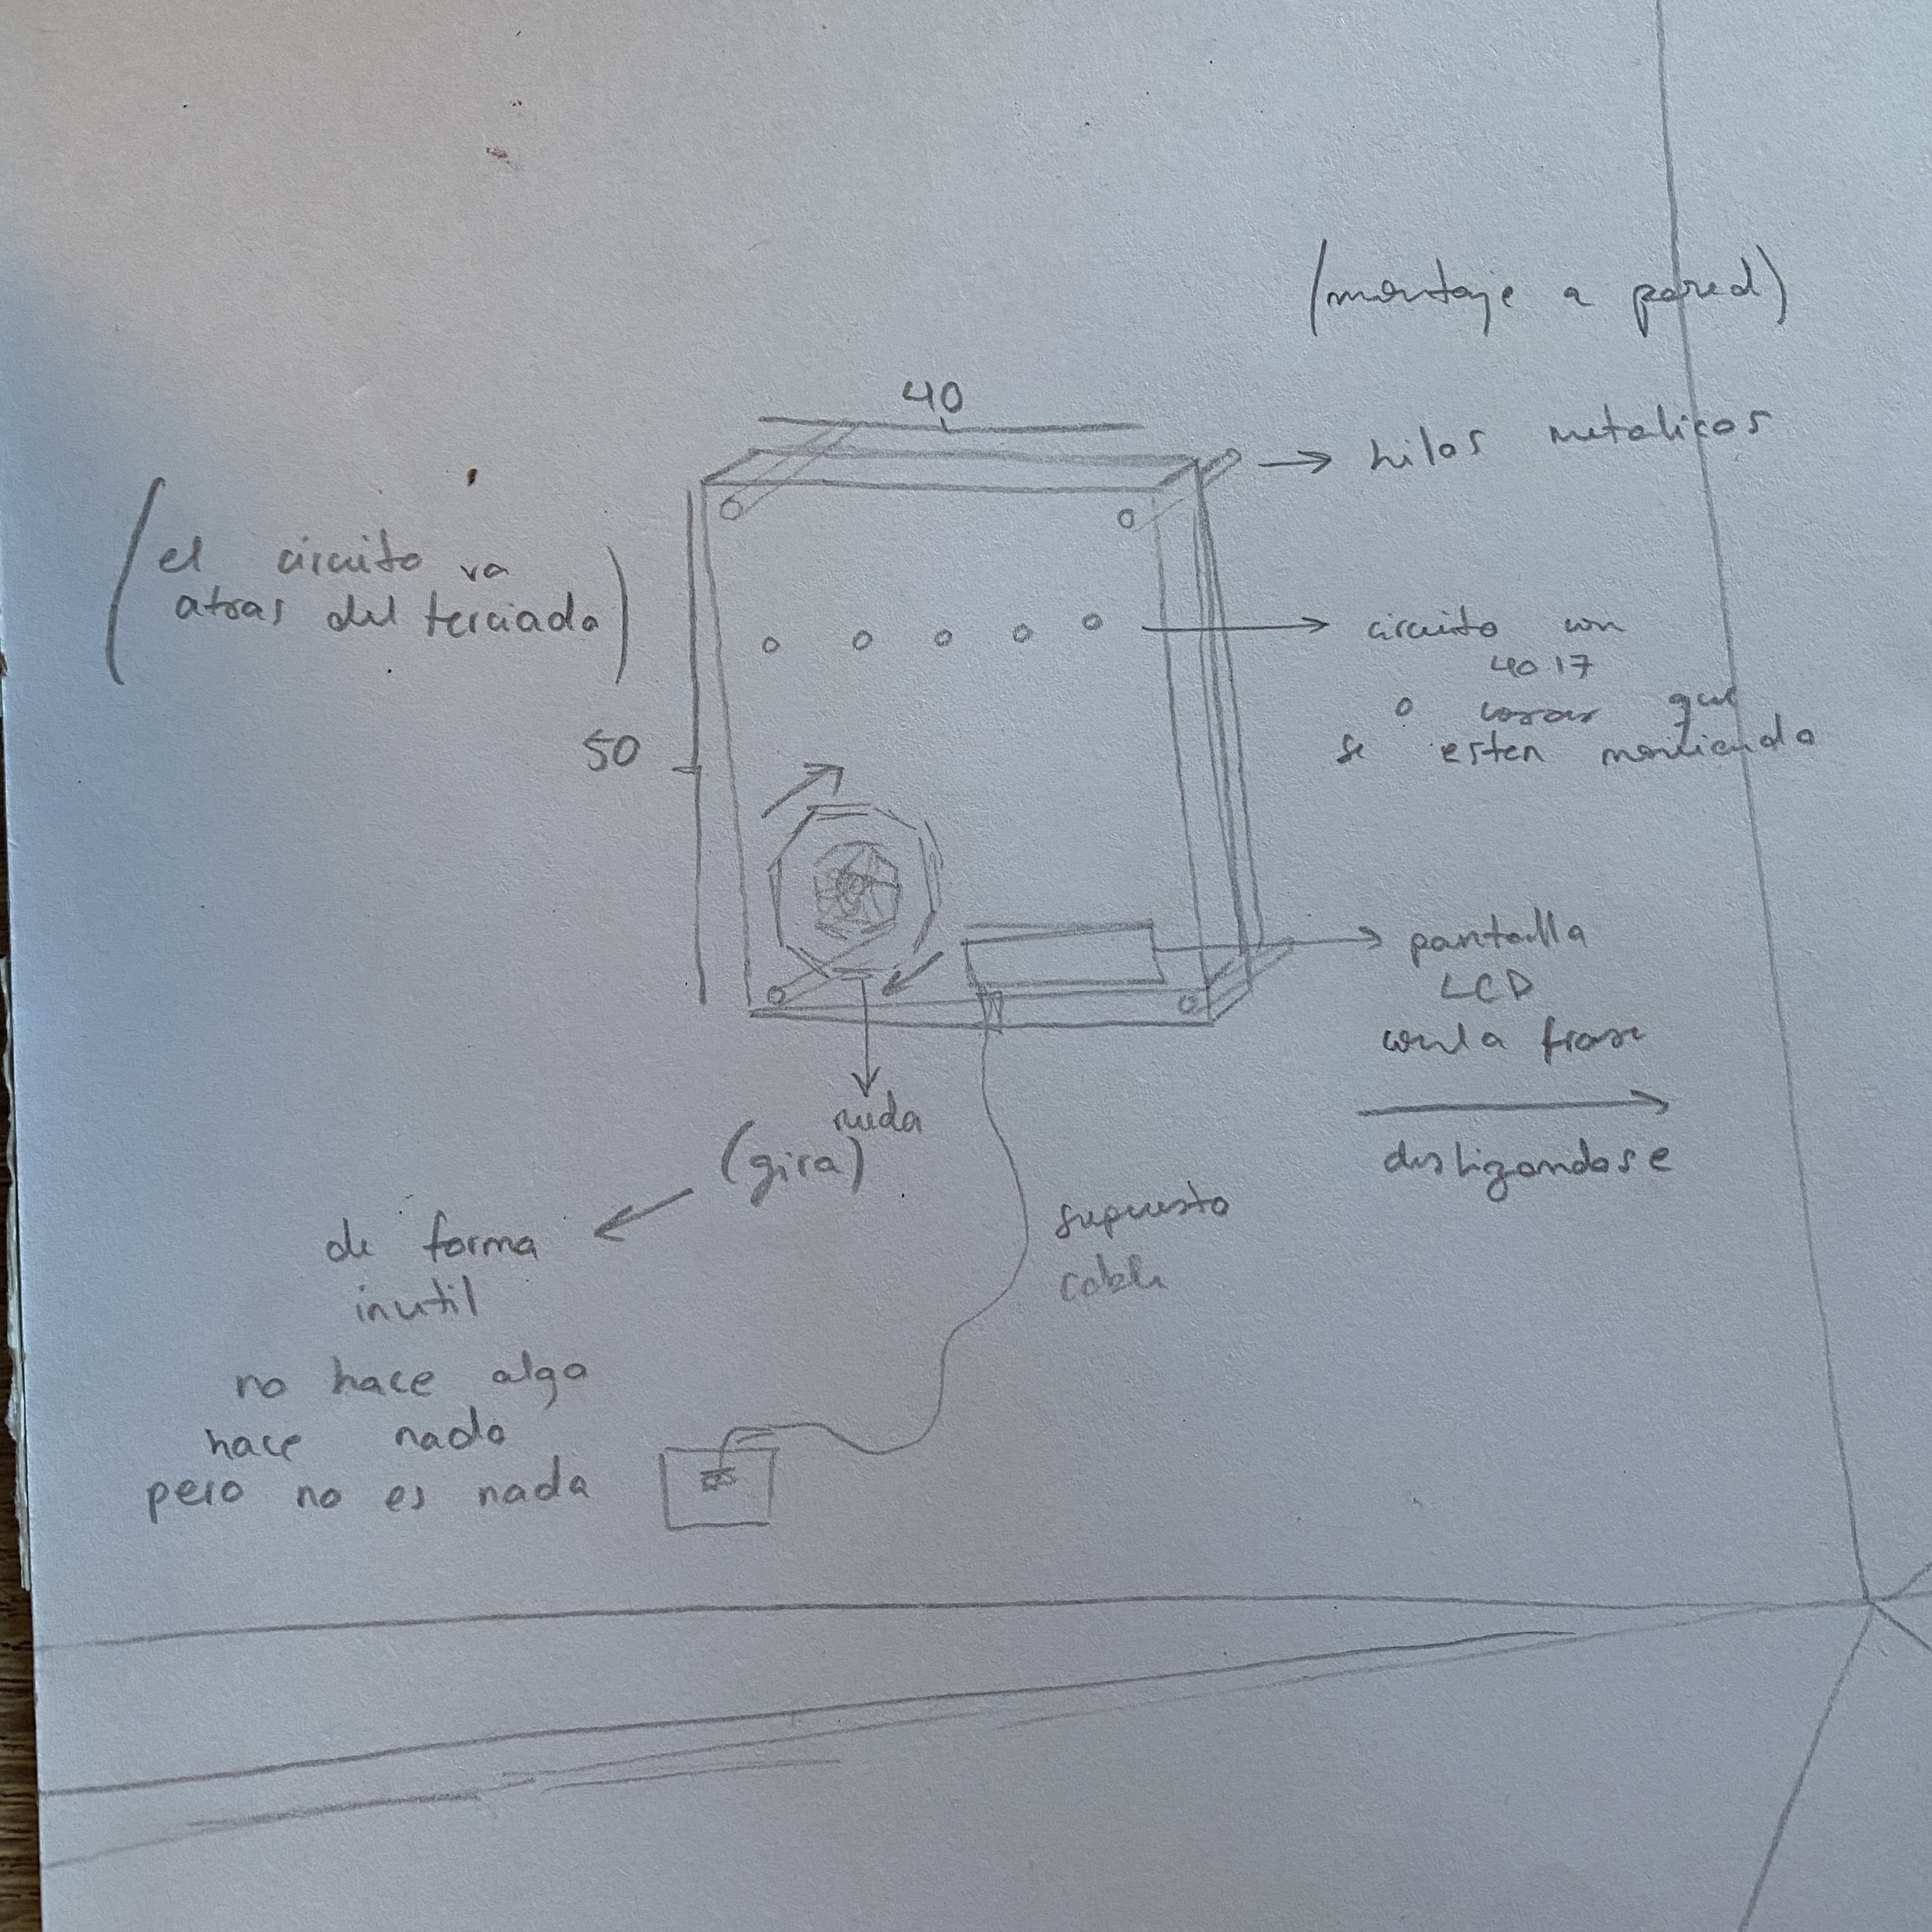 (montaje a pared)
40
hilos metalicos
(el circuito va
atras del terciado)
circuito con
4017
o cosas que
se esten moviendo
50
pantalla
LCD
con la frase
deslizandose
rueda
(gira)
de forma
inutil
no hace algo
hace nada
pero no es nada
supuesto
cable